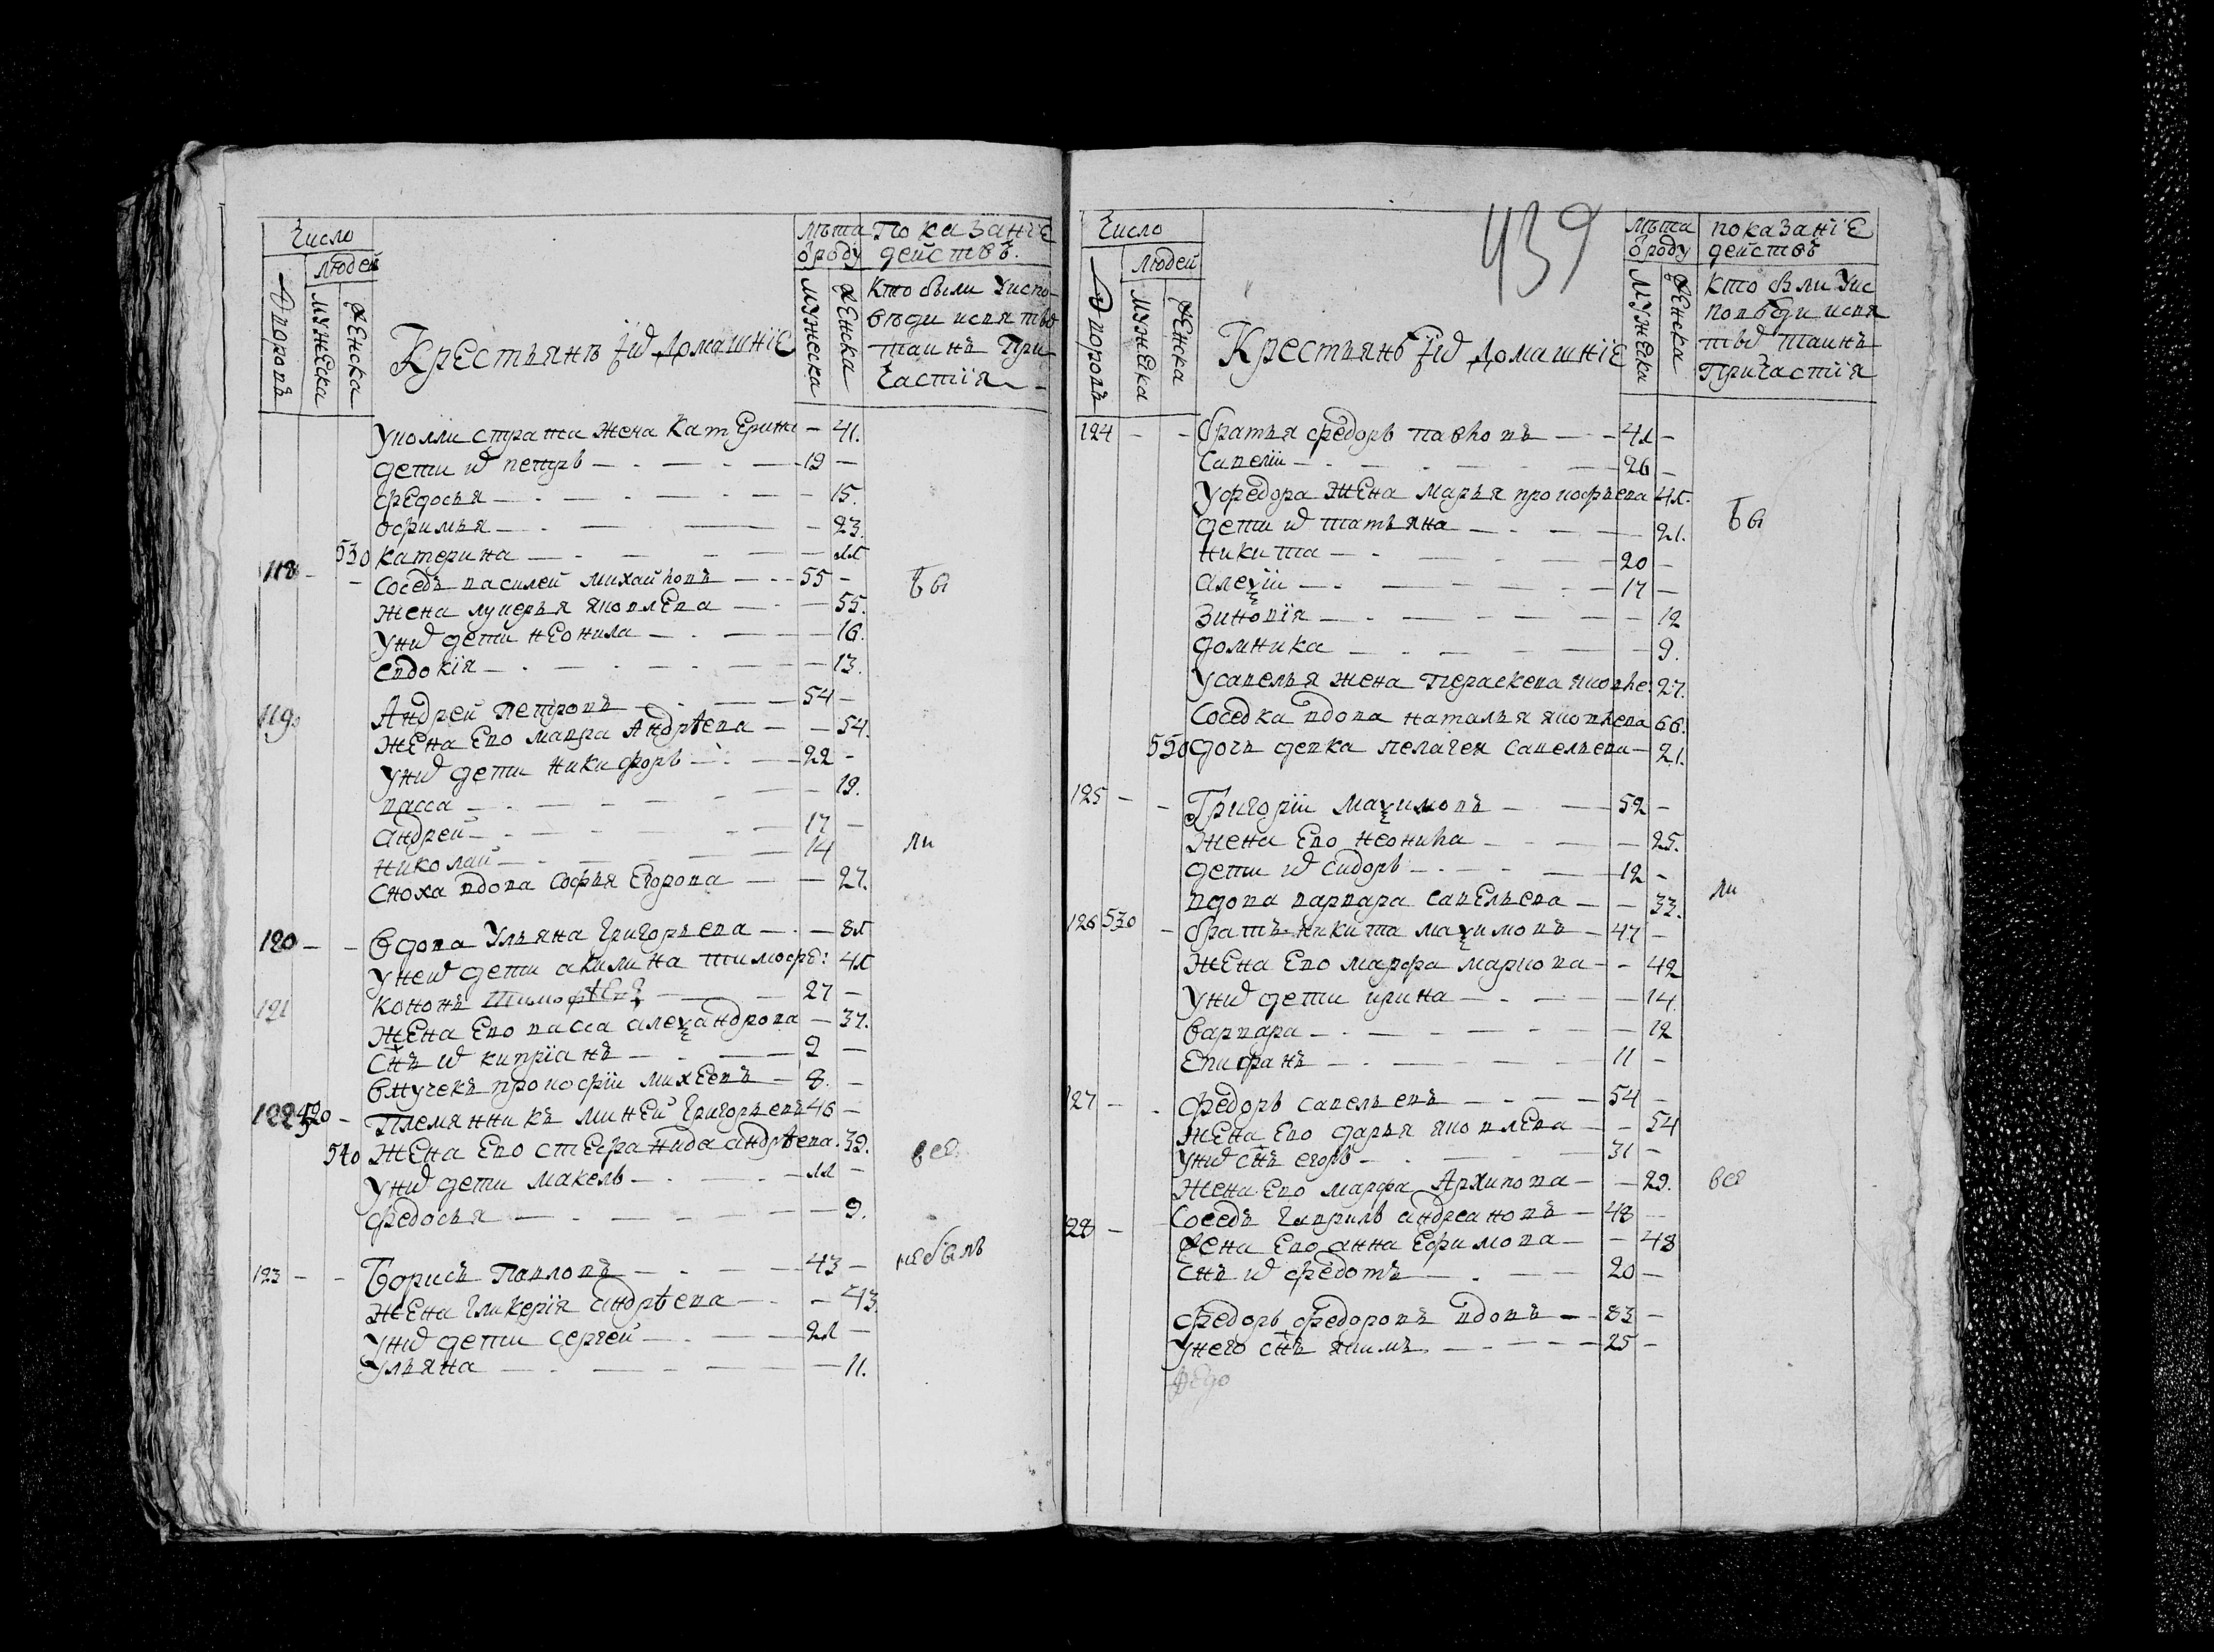 Число
людей
Дворовъ
мужеска
женска
Крестьянѣ ихъ домашніе
лѣта
ѿроду
мужеска
женска
показаніе
действъ.
Кто были Уиспо-
вѣди исвятыхъ
таинъ При
Частія
Уполли страта жена Катерина — 41.
дети ихъ петръ — 19 —
федосья — 15.
офимья — 23.
530 катерина —
118 — соседъ василей михайловъ — 55 —
жена лукерья яковлева — 55.
Унихъ дети неонила — 16.
евдокія — 13.
119 Андрей Петровъ — 54 —
жена ево мавра Андрѣева — 54.
Унихъ дети никифоръ — 22 —
васса — 19.
андрей — 17 —
николай — 14
сноха вдова софья Егорова — 27.
120 — вдова Ульяна Григорьева —
Унеихъ дети акилина тимофе:
121 кононъ тимофѣевъ — 27 —
жена ево васса алеѯандрова — 37.
снъ ихъ кипріанъ — 2 —
внучекъ прокофіи михеевъ — 8. —
122 520 — Племянникъ миней Григорьевъ 46 —
540 жена ево стефанида андрѣева. 39.
Унихъ дети макель —
федосья — 9.
123 — Борисъ Павловъ — 43 —
жена гликерія андрѣева — 43.
Унихъ дети сергей —
Ульяна — 11.
бы
ли
все
небылъ
439
Число
людей
Дворовъ
мужеска
женска
Крестьянъ ихъ домашніе
лѣта
ѿроду
мужеска
женска
показаніе
действъ
Кто были Уис
поведи исвя
тыхъ таинъ
Причастія
124 — братья федоръ павловъ —
савелій — 26 —
Уфедора жена марья прокофьева
дети ихъ татьяна — 21.
никита — 20 —
алеѯіи — 17 —
зиновія — 12
домника — 9.
Усавелья жена Пераскева яковле. 27.
Соседка вдова наталья яковлева 66.
550 дочь девка пелагея савельева — 21.
125 — Григоріи Маѯимовъ — 52 —
жена ево неонила — 25.
дети ихъ сидоръ — 12 —
вдова варвара савельева — 33.
126 530 — братъ никита маѯимовъ — 47 —
жена ево марфа маркова — 42
Унихъ дети ирина — 14.
варвара — 12
епифанъ — 11 —
127 — федоръ савельевъ — 54 —
жена ево дарья яковлева — 54
Унихъ снъ егоръ — 31 —
жена ево марфа Архипова — 29.
128 — соседъ гаврилъ андреановъ — 48 —
жена ево анна ефимова — 48
снъ ихъ федотъ — 20 —
федоръ федоровъ вдовъ — 83 —
Унего снъ якимъ — 25 —
федо
бы
ли
все